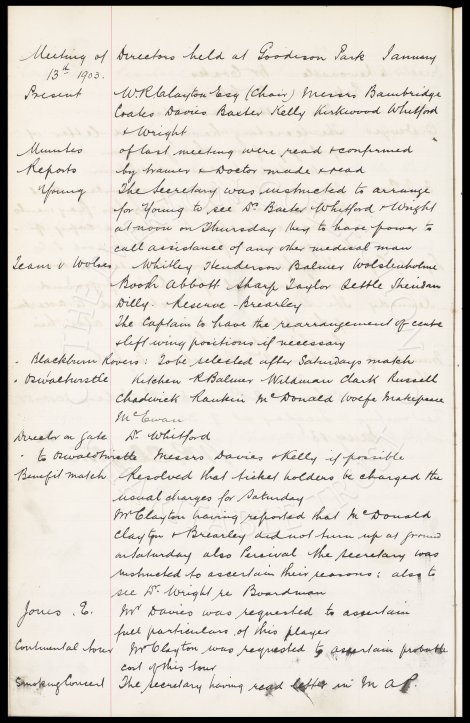 Meeting of Directors held at Goodison Park January
13th 1903.
Present W R Clayton Esq (Chair) Messrs Bainbridge
Coates Davies Baxter Kelly Kirkwood Whitford
& Wright
Minutes of last meeting were read & confirmed
Reports by trainer & Doctor made & read
Young The Secretary was instructed to arrange
for Young to see Dr Baxter Whitford & Wright
at noon on Thursday they to have power to
call assistance of any other medical man
Team v Wolves Whitley Henderson Balmer Wolstenholme
Booth Abbott Sharp Taylor Settle Sheridan
Dilly - Reserve - Brearley
The Captain to have the rearrangement of centre
& left wing positions if necessary
" Blackburn Rovers: To be selected after Saturdays match
" Oswaltwistle Kitchen R Balmer Wildman Clark Russell
Chadwick Rankin McDonald Wolfe Makepeace
McEwan
Director on gate Dr Whitford
" to Oswaldtwistle Messrs Davies & Kelly if possible
Benefit match Resolved that ticket holders be charged the
usual charges for Saturday
Mr Clayton having reported that McDonald
Clayton & Brearley did not turn up at ground
on Saturday also Percival the Secretary was
instructed to ascertain their reasons: also to
see Dr Wright re Boardman
Jones. E. Mr Davies was requested to ascertain
full particulars of this player
Continental tour Mr Clayton was requested to ascertain probable
cost of this tour
Smoking Concert The Secretary having read letter in M A P.